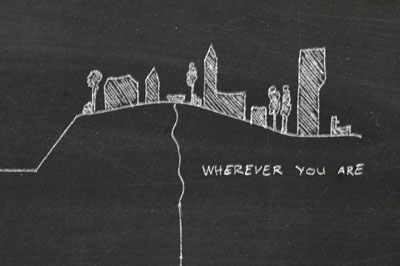 WHEREVER YOU ARE